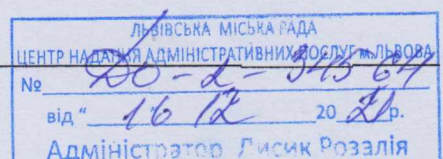 ЛЬВІВСЬКА МІСЬКА РАДА
ЦЕНТР НАДАННЯ АДМІНІСТРАТИВНИХ ПОСЛУГ м.ЛЬВОВА
№ 20-2-34564
від " 16 12 20 21 р.
Адміністратор Лисик Розалія